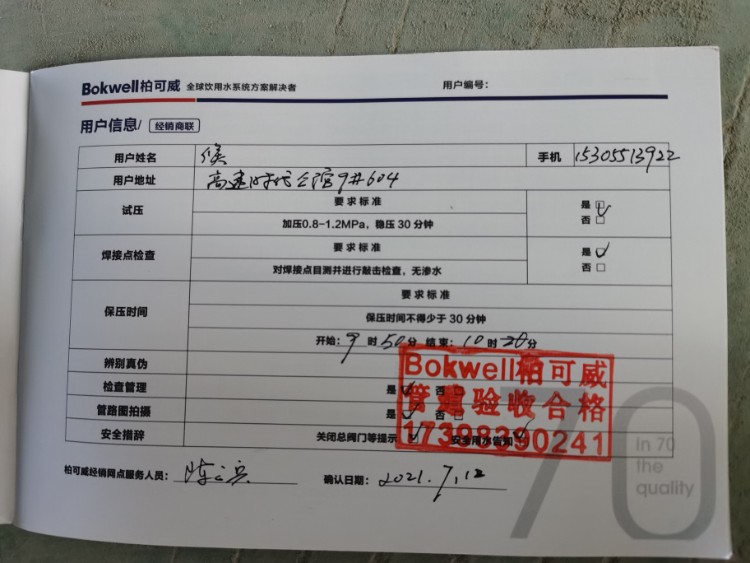 Bokwell柏可威 全球饮用水系统方案解决者 用户编号:
用户信息/ 经销商联
用户姓名 侯 手机 15305513922
用户地址 高速时代公馆9#604
试压 要求标准 是 否
加压0.8-1.2MPa，稳压 30 分钟
焊接点检查 要求标准 是 否
对焊接点目测并进行敲击检查，无渗水
保压时间 要求标准
保压时间不得少于 30 分钟
开始: 9 时 50 分 结束: 10 时 20 分
辨别真伪
检查管理 是 否
管路图拍摄 是 否
安全措辞 关闭总阀门等提示 安全用水告知
Bokwell柏可威
管道验收合格
17398390241
70
In 70
the
quality
柏可威经销网点服务人员: 确认日期: 2021.7.12